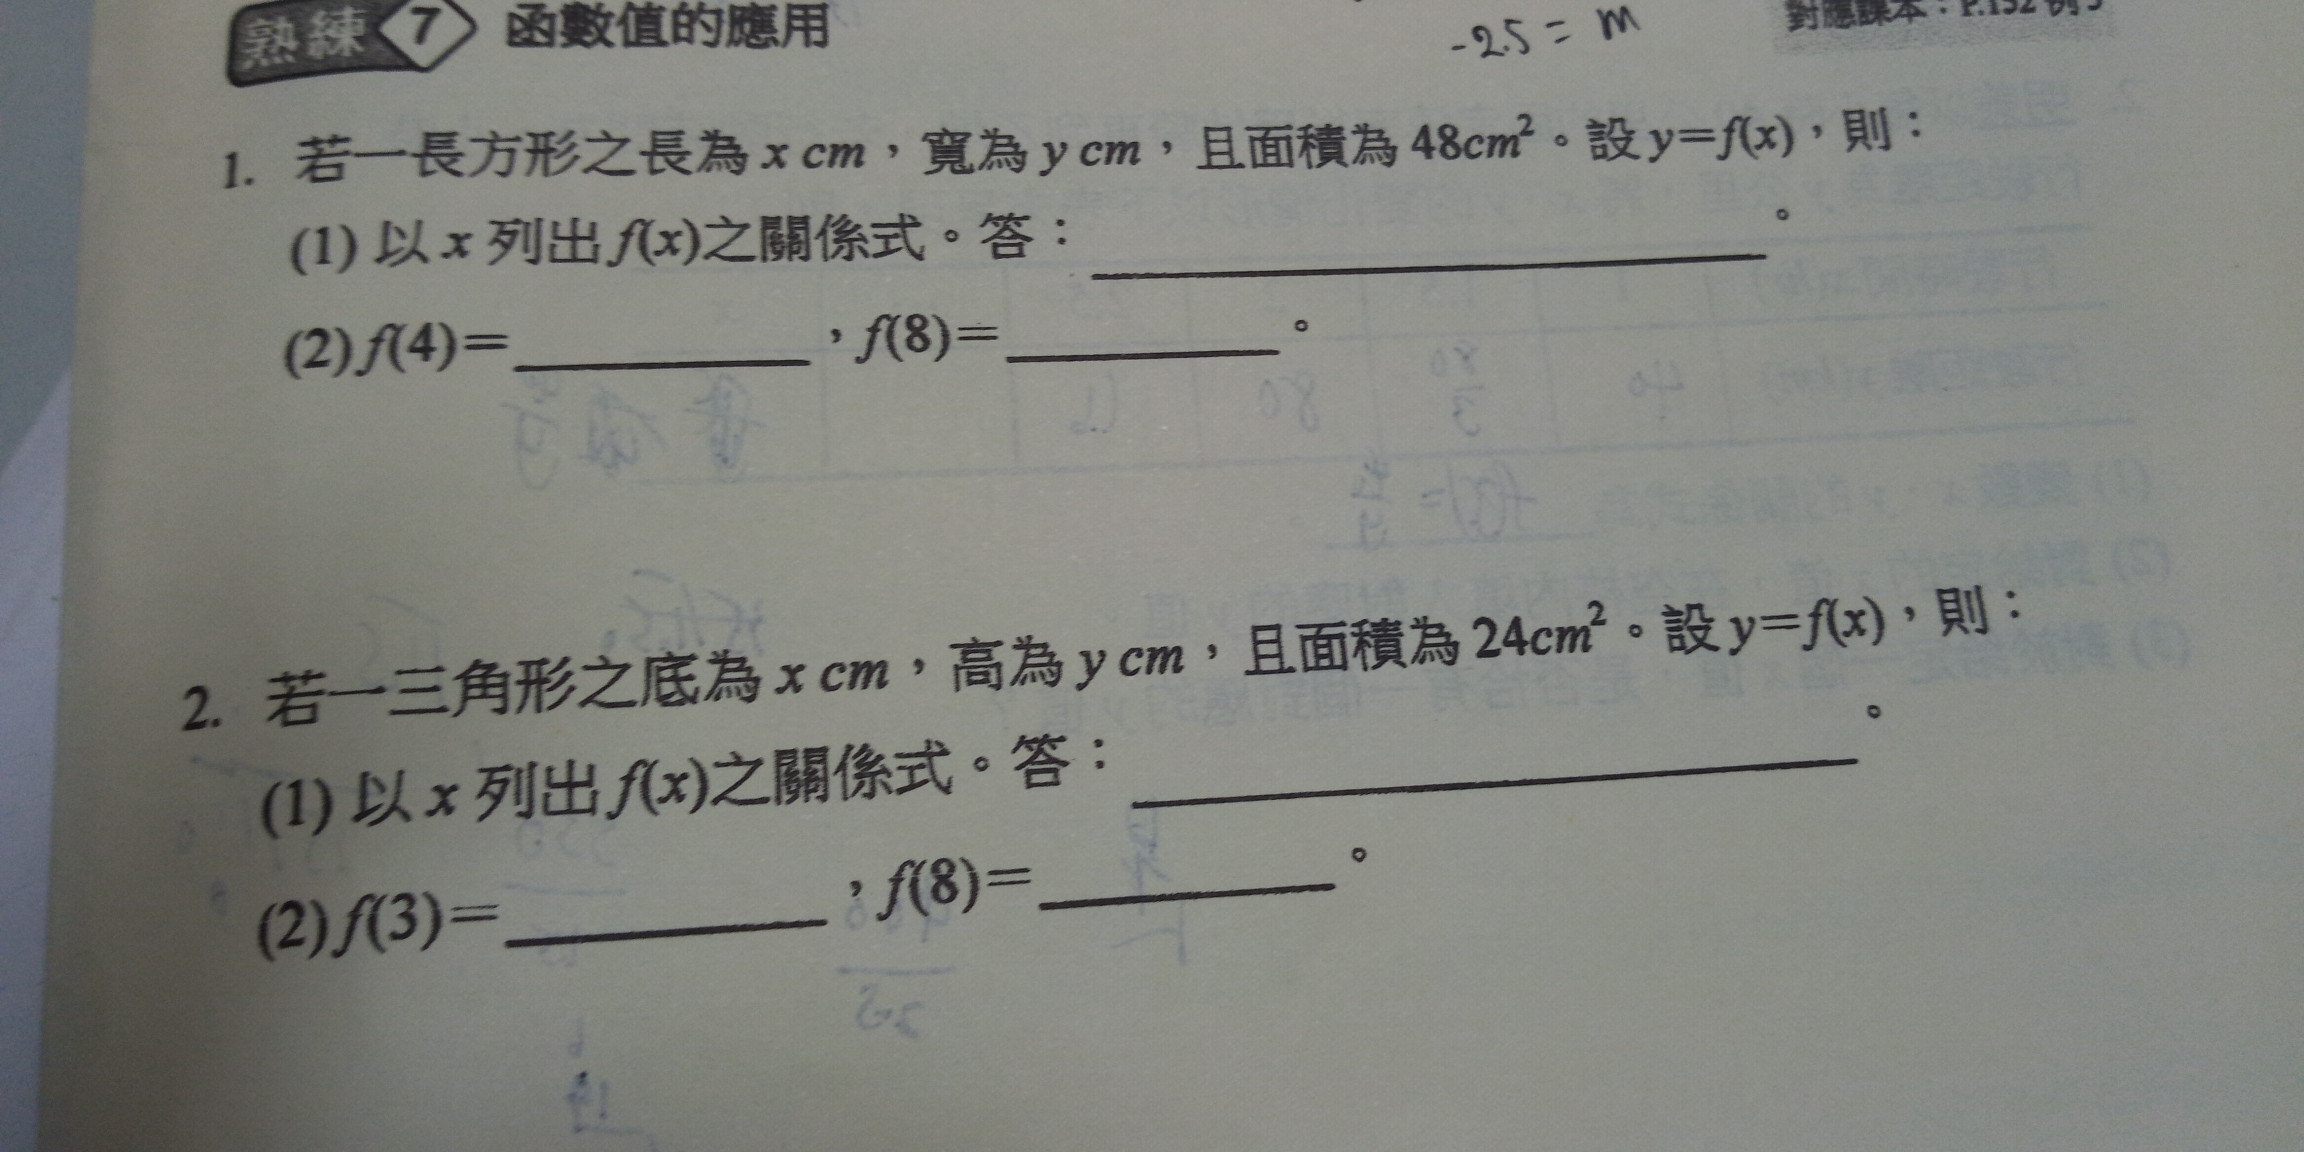 熟練 7 函數值的應用
-2.5 = m
對應課本：P.132 例5
1. 若一長方形之長為 x cm，寬為 y cm，且面積為 48cm²。設 y=f(x)，則：
(1) 以 x 列出 f(x)之關係式。答：＿＿＿＿＿＿。
(2) f(4)=＿＿＿＿，f(8)=＿＿＿＿。
2. 若一三角形之底為 x cm，高為 y cm，且面積為 24cm²。設 y=f(x)，則：
(1) 以 x 列出 f(x)之關係式。答：＿＿＿＿＿＿。
(2) f(3)=＿＿＿＿，f(8)=＿＿＿＿。